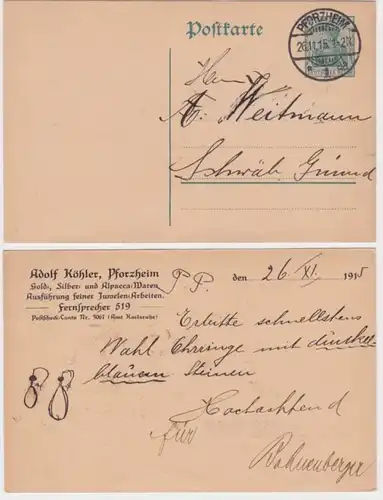 Postkarte
PFORZHEIM
26.11.15. 1-2N.
Herrn
A. Weitmann
Schwäb. Gmünd
Adolf Köhler, Pforzheim
Gold-, Silber- und Alpacca-Waren
Ausführung feiner Juwelen-Arbeiten.
Fernsprecher 519
Postscheck-Conto Nr. 5067 (Amt Karlsruhe)
P. P. den 26. XI. 1915
Erbitte schnellstens
Wahl Ohrringe mit dunkel
blauen Steinen
Hochachtend
für